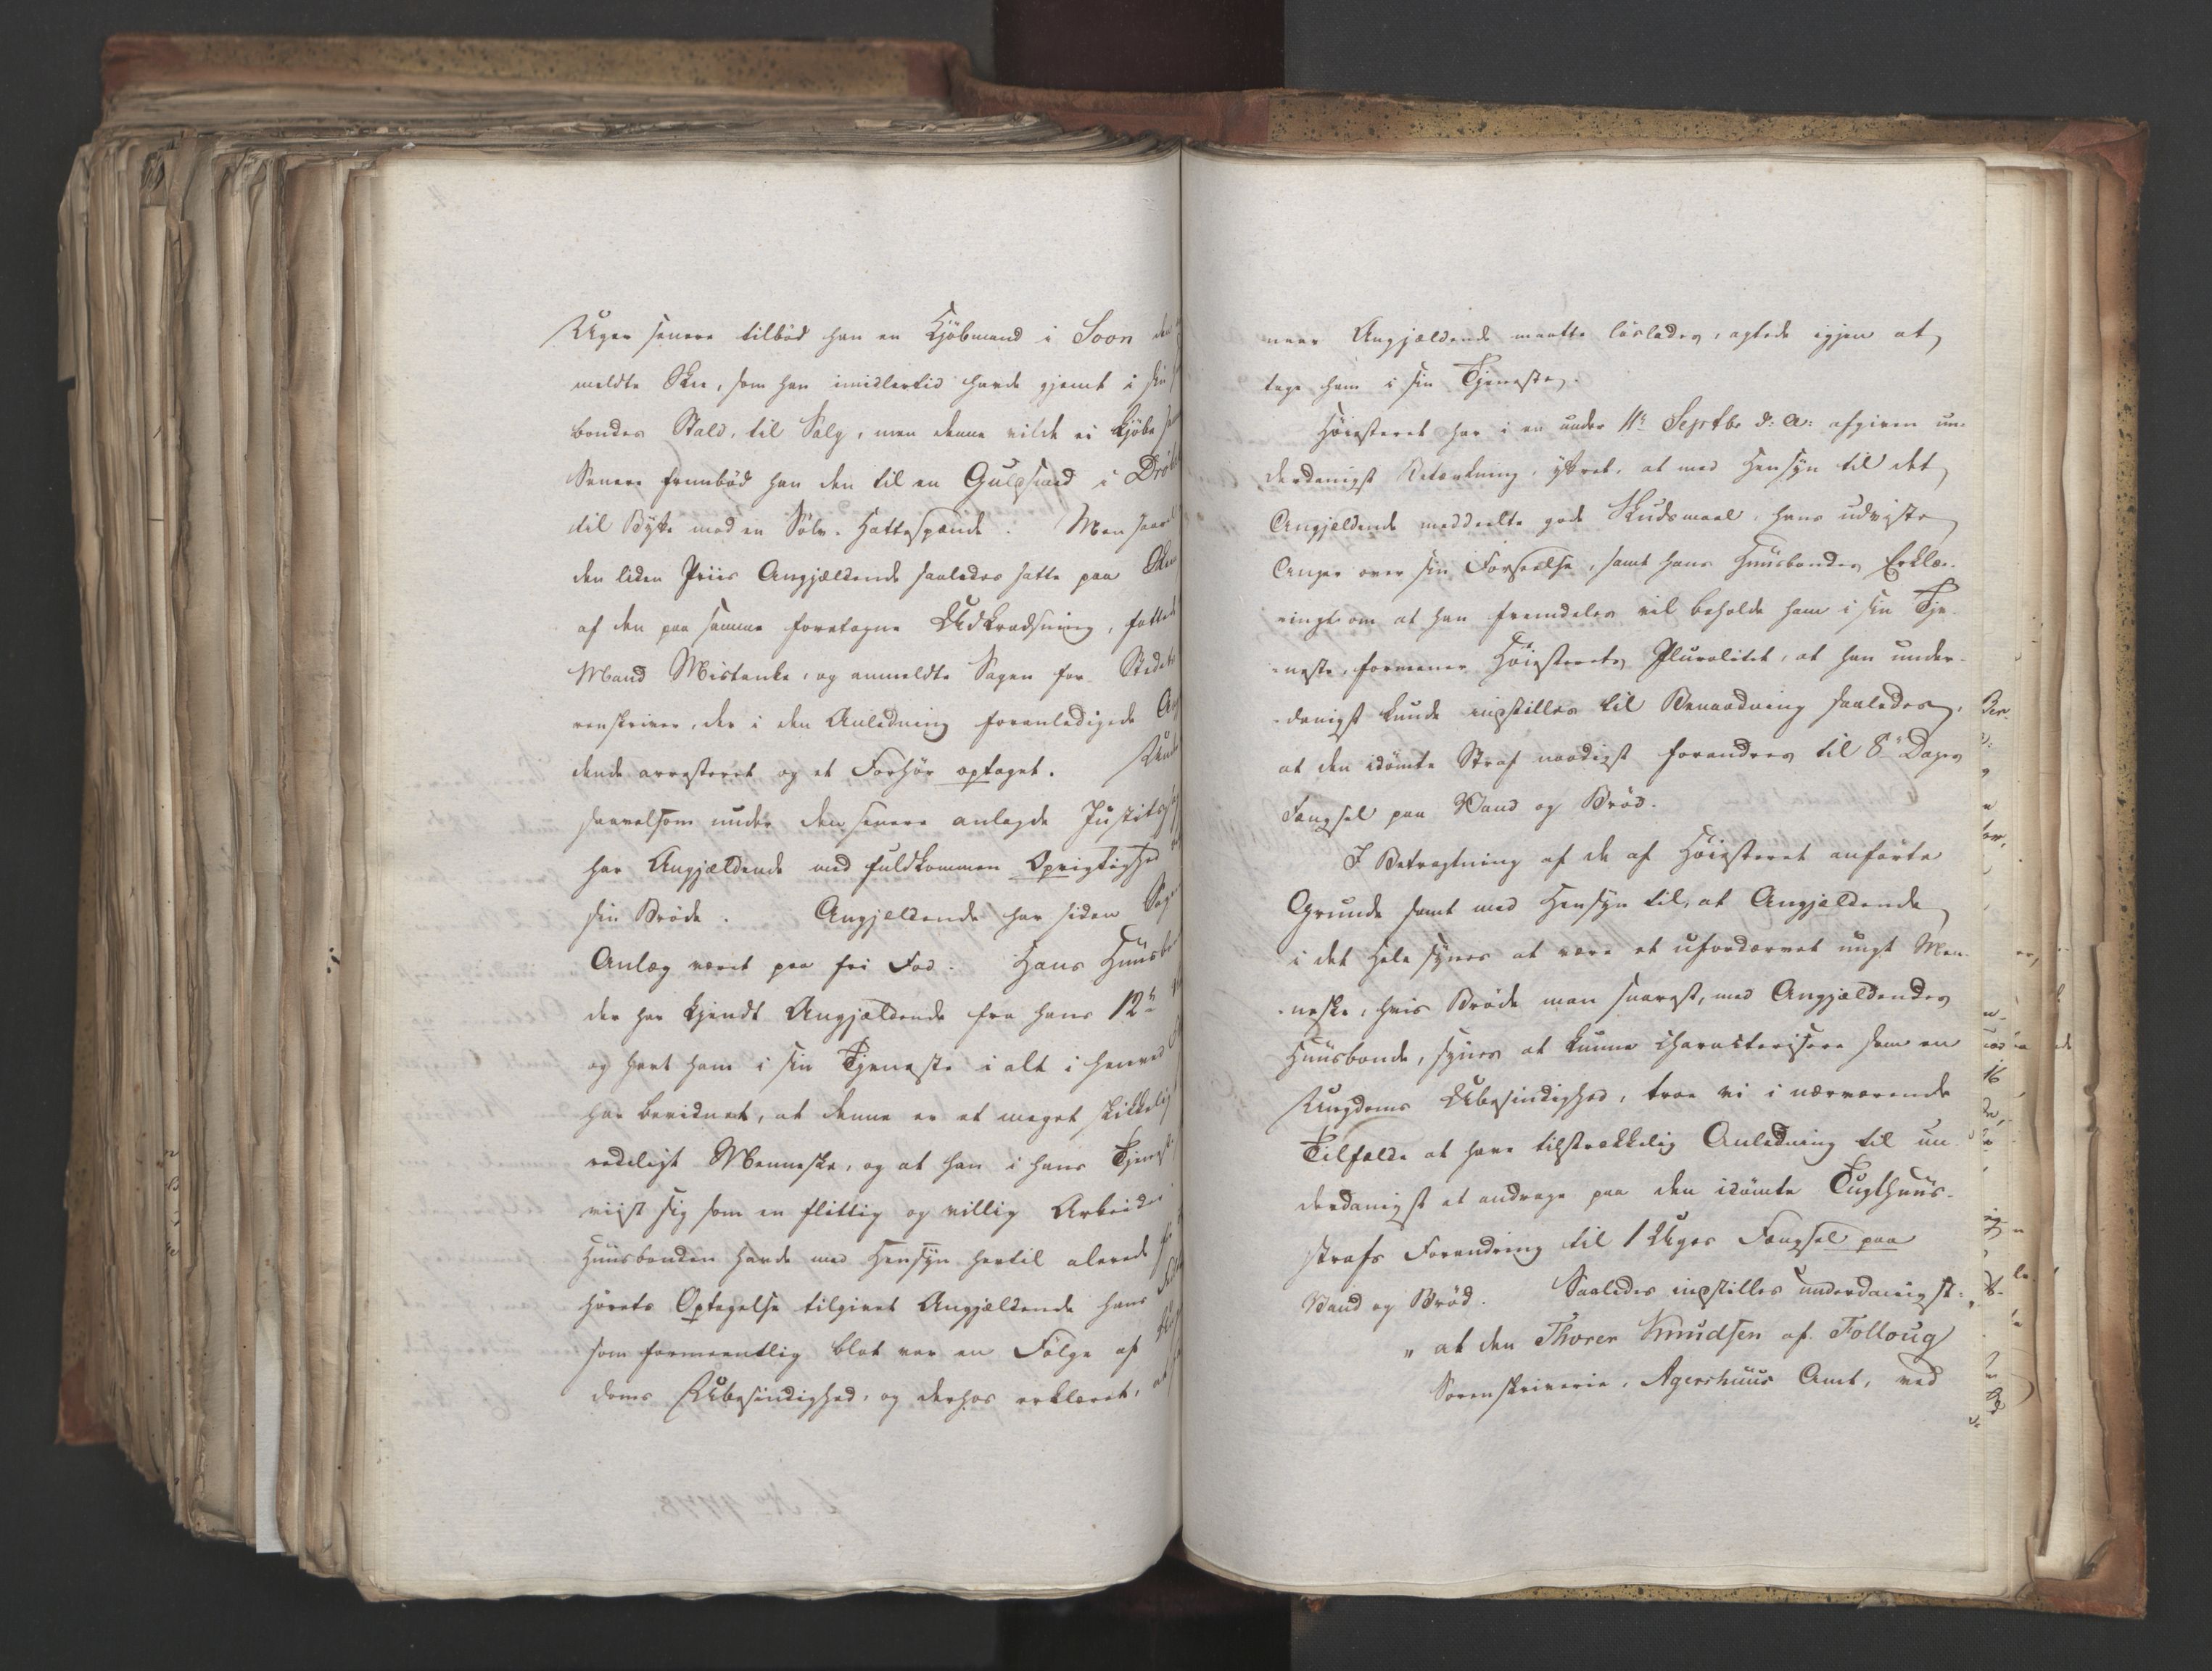 Uger senere tilbød han en Kjöbmand i Soon
meldte Skee, som han imidlertid havde gjemt i sin
bondes Stald, til Salg, men denne vilde ei kjöbe
Senere frembød han den til en Gulssmed i Drö
til Bytte mod en Sölv-Hattespænde. Men
den liden Priis Angjældende saaledes satte paa Skeen
af den paa samme foretagne Udkradsning, fattede
Mand Mistanke, og anmeldte Sagen for Stedets
renskriver, der i den Anledning foranledigede
dende arresteret og et Forhör optaget. Under
saavelsom under den senere anlagde Justits
har Angjældende med fuldkommen Oprigtighed
sin Bröde. Angjeldende har siden Sagens
Anlæg været paa fri Fod. Hans Huusbonde
der har kjendt Angjældende fra hans 12te
og havt ham i sin Tjeneste i alt i henved
har bevidnet, at denne er et meget skikkeligt
redeligt Menneske, og at han i hans Tjeneste
viist sig som en flittig og villig Arbeider
Huusbonden havde med Hensyn hertil alerede
hörets Optagelse tilgivet Angjældende hans
som formeentlig blot var en Fölge af
doms Ubesindighed, og derhos erklæret,
naar Angjældende maatte löslades, agtede igjen at
tage ham i sin Tjeneste.
Höiesteret har i en under 11te Septbr d: A: afgiven un-
derdanigst Betænkning, yttret, at med Hensyn til det
Angjældende meddeelte gode Skudsmaal, hans udviste
Anger over sin Forseelse, samt hans Huusbondes Erklæ-
ringt om at han fremdeles vil beholde ham i sin Tje-
neste, formener Höiesterets Pluralitet, at han under-
danigst kunde indstilles til Benaadning saaledes,
at den idömte Straf naadigst forandres til 8te Dages
Fængsel paa Vand og Bröd.
I Betragtning af de af Höiesteret anförte
Grunde samt med Hensyn til, at Angjældende
i det Hele synes at være et ufordærvet ungt Men-
neske, hvis Bröde man snarest, med Angjældendes
Huusbonde, synes at kunne charakterisere som en
Ungdoms Ubesindighed, troe vi i nærværende
Tilfælde at have tilstrækkelig Anledning til un-
derdanigst at andrage paa den idömte Tugthuus-
strafs Forandring til 1 Uges Fængsel paa
Vand og Bröd. Saaledes indstilles underdanigst:
" at den Thorer Knudsen af Folloug
Sorenskriverie, Agershuus Amt, ved